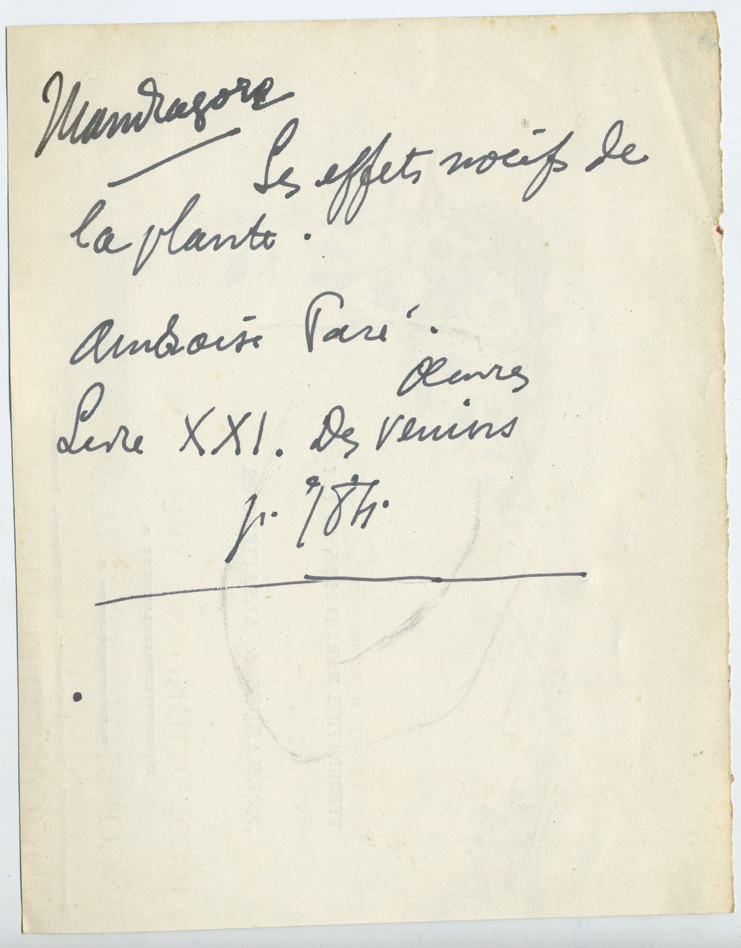 Mandragore
Les effets nocifs de
la plante.
Ambroise Paré.
Œuvres
Livre XXI. Des Venins
p. 784.